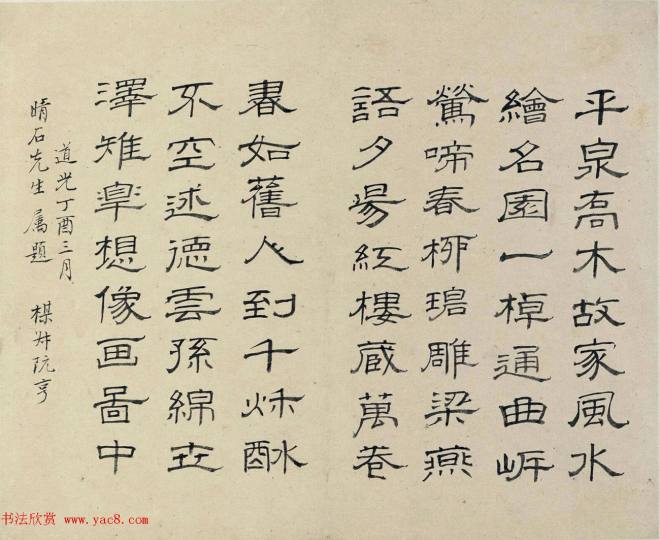 平泉高木故家風水
繪名園一棹通曲岸
鶯啼春桺碧雕梁燕
語夕陽紅樓藏萬卷
書如舊人到千秌酬
不空述德雲孫綿世
澤雉皐想像画啚中
道光丁酉三月
晴石先生属題 楳叔阮亨
书法欣赏 www.yac8.com